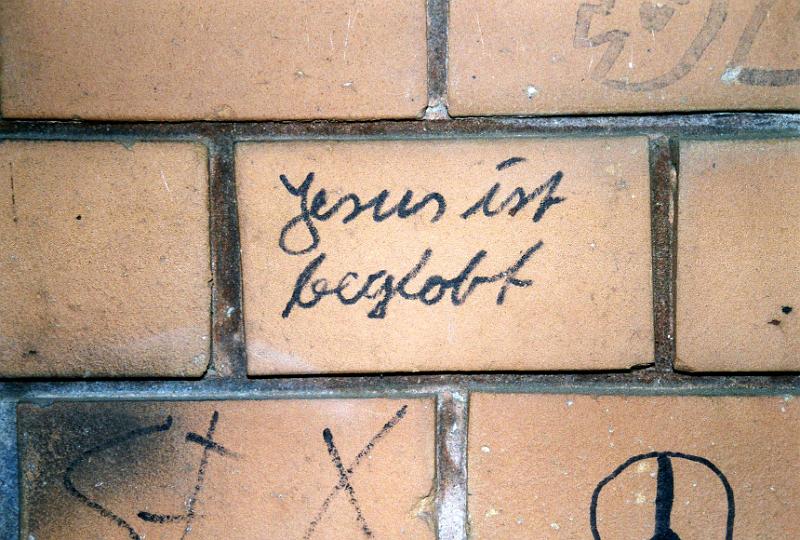 Jesus ist
beglobt